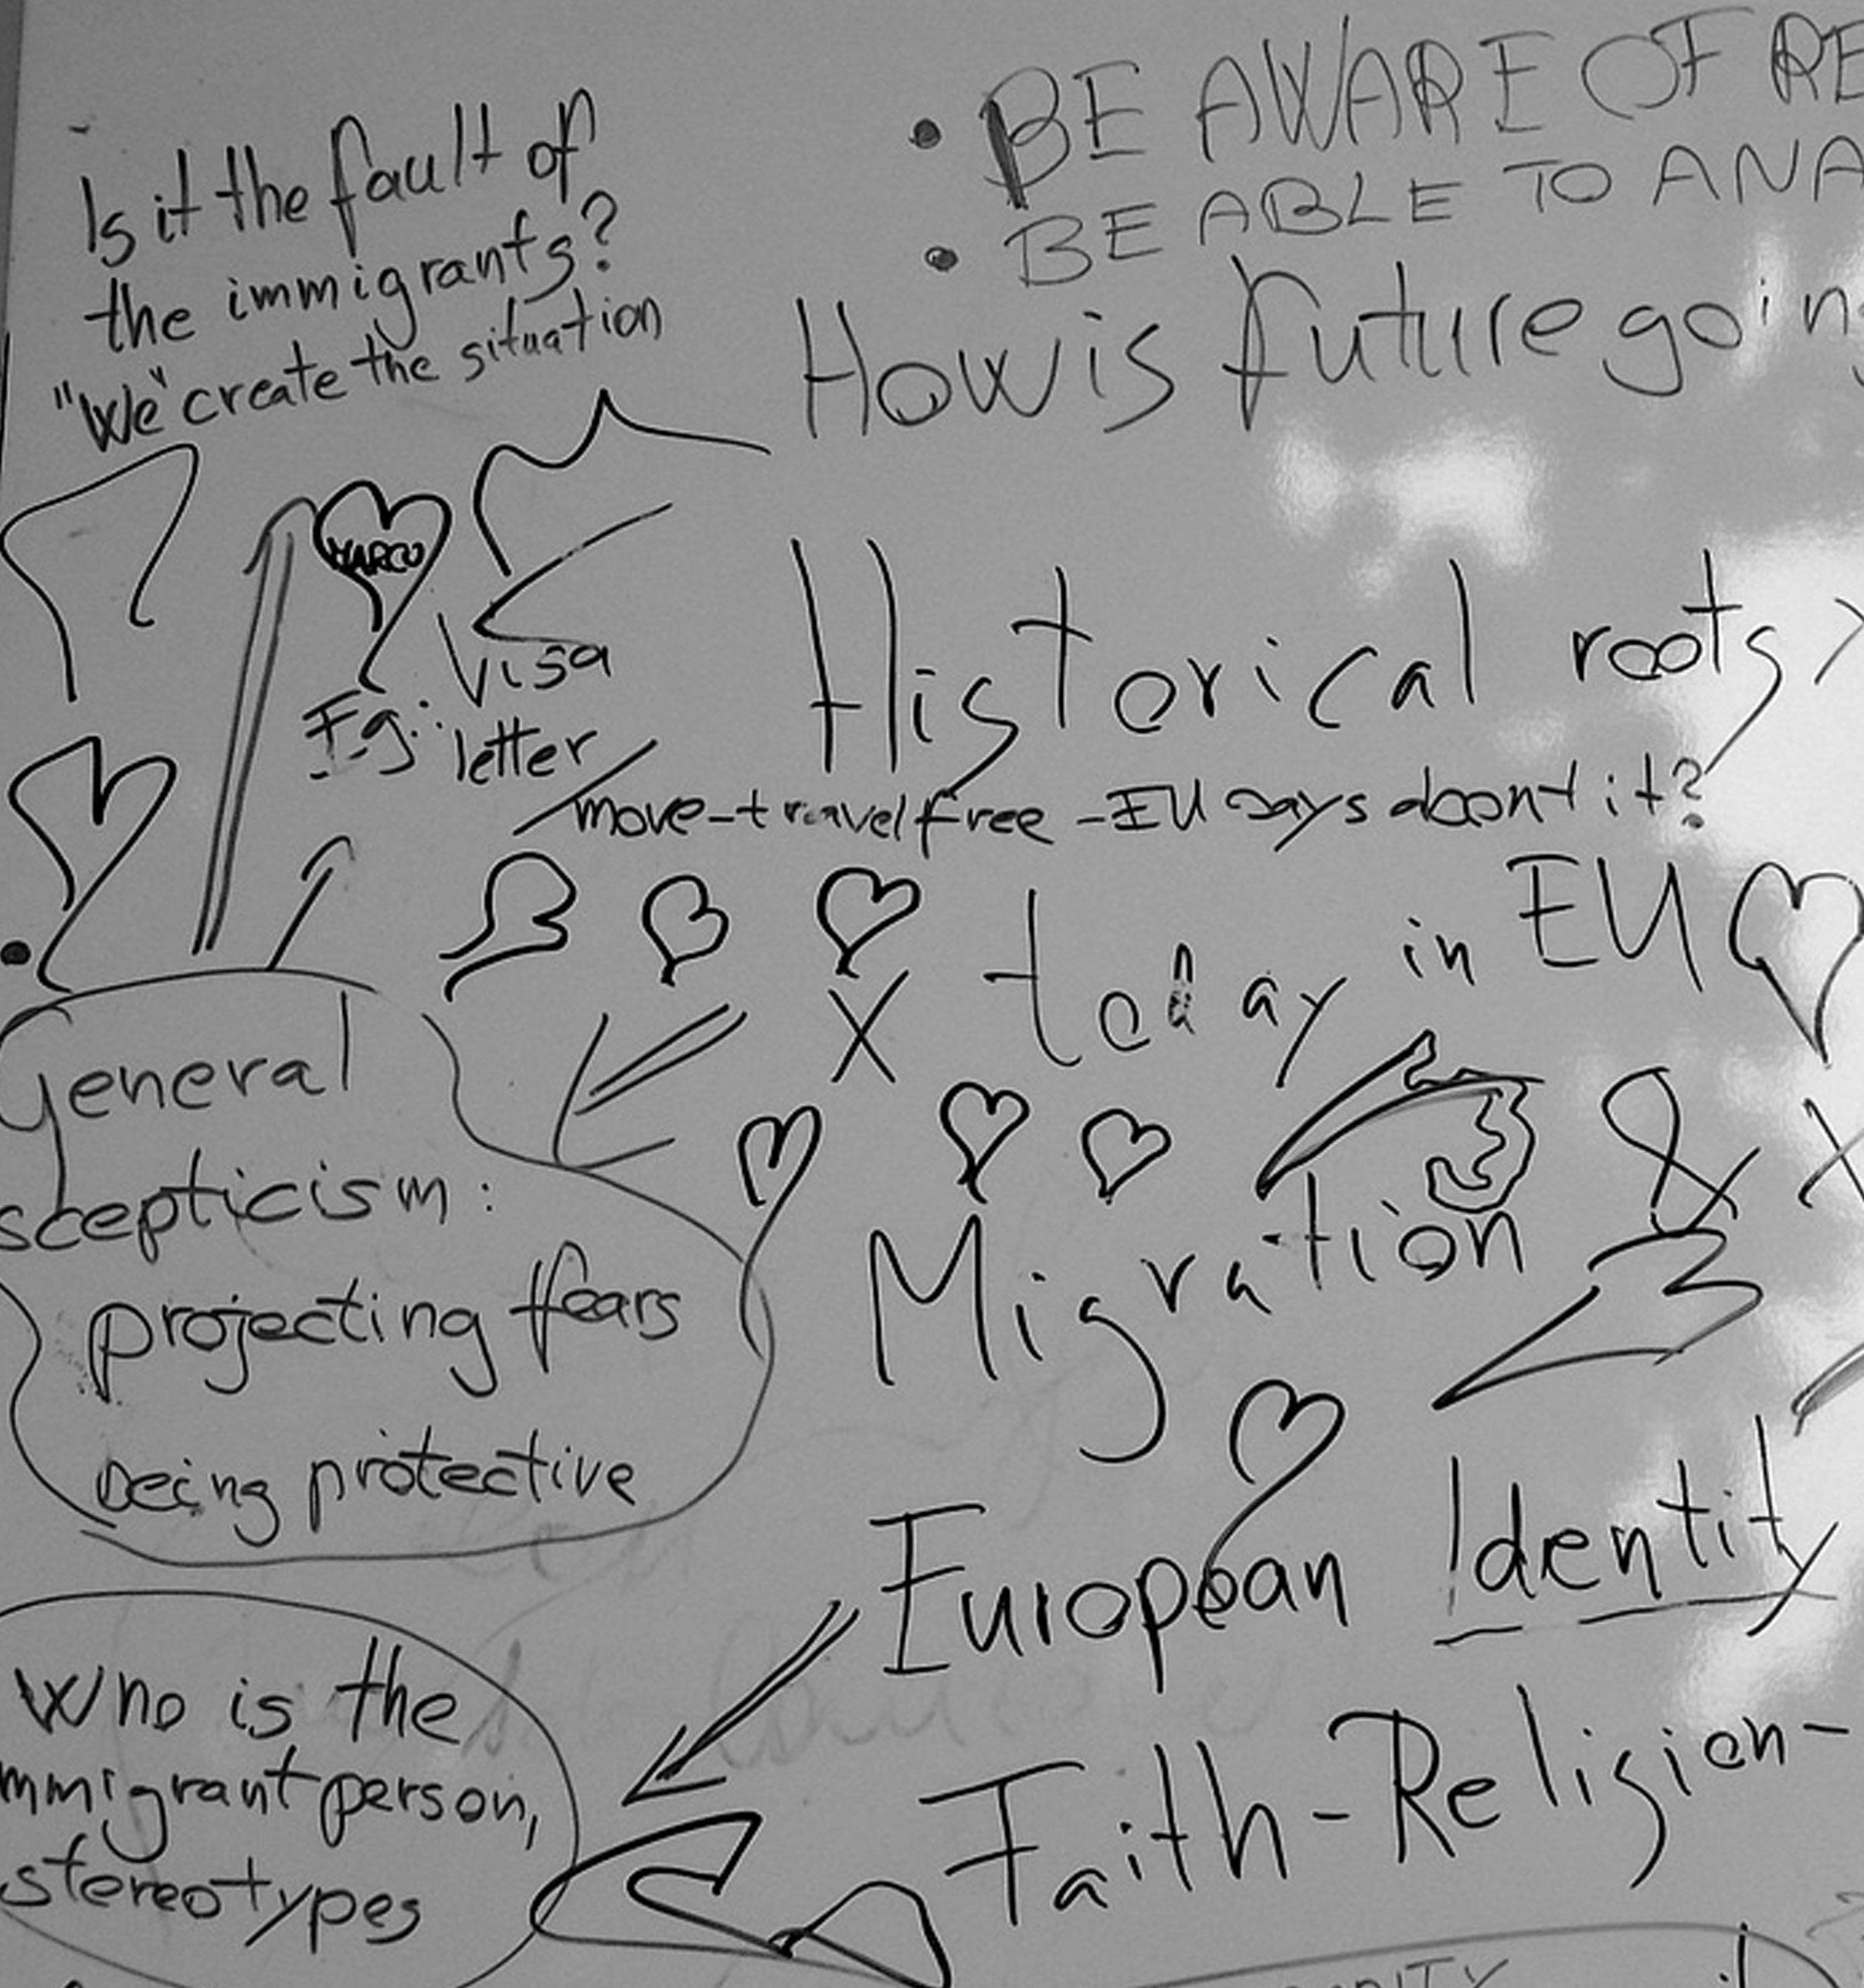 Is it the fault of
the immigrants?
"We" create the situation
• BE AWARE OF RE
• BE ABLE TO ANA
How is future going
MARCO
E.g.: Visa
letter
Historical roots
move-travel free -EU says doont it?
X today in EU
general
scepticism:
projecting ffears
being protective
Migration & X
European Identity
Who is the
mmigrant person,
stereotypes
Faith-Religion-